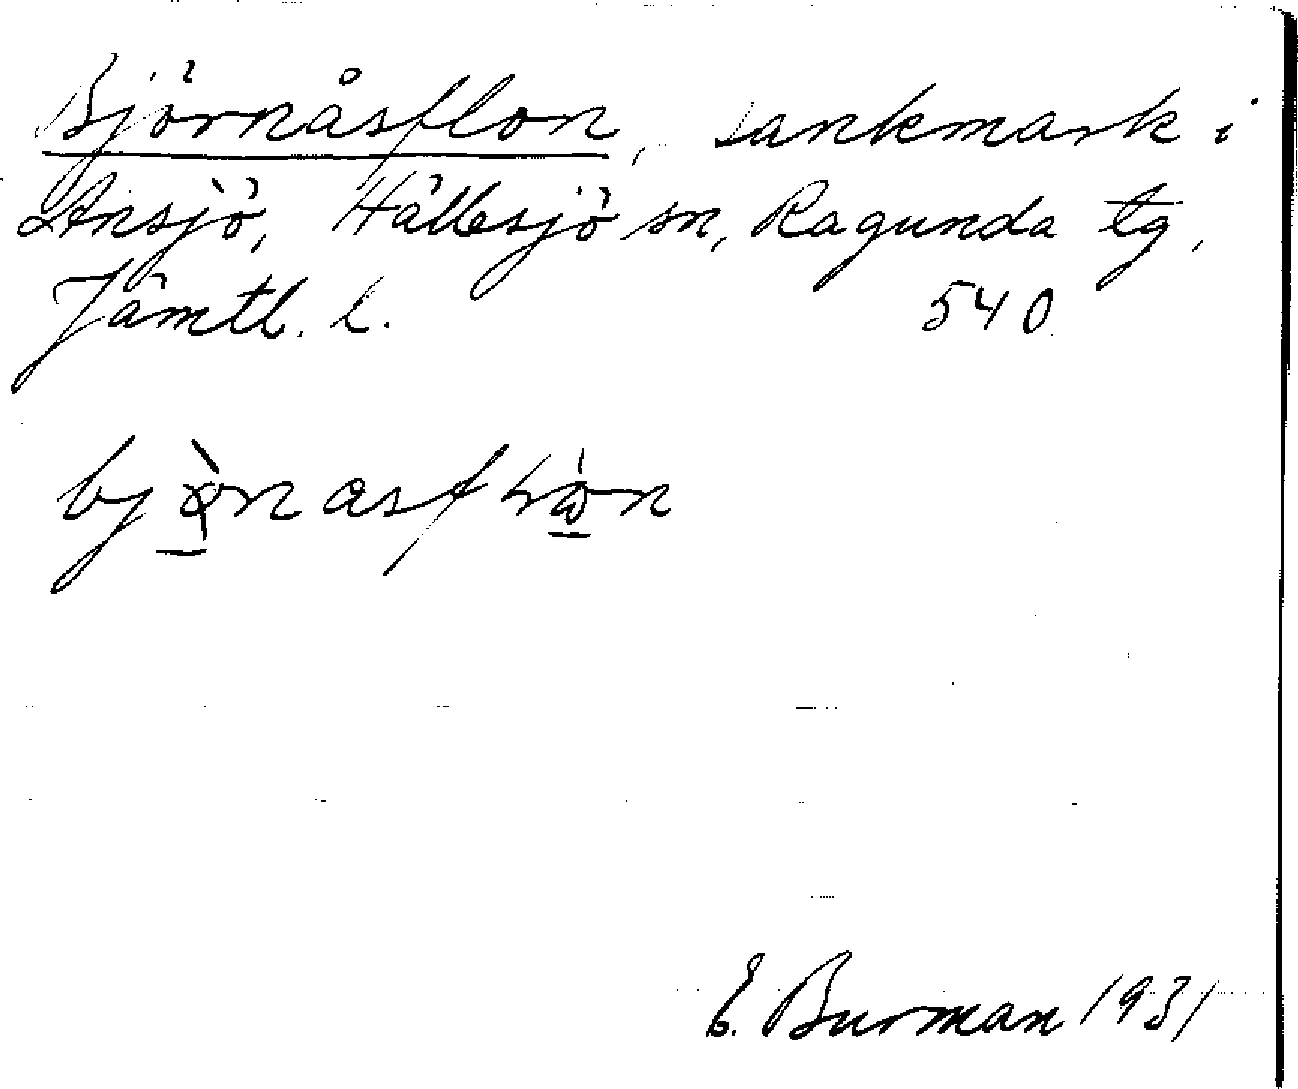 Björnåsflon, sankmark i
Ansjö, Hällesjö sn, Ragunda tg,
Jämtl. l. 540
E. Burman 1931